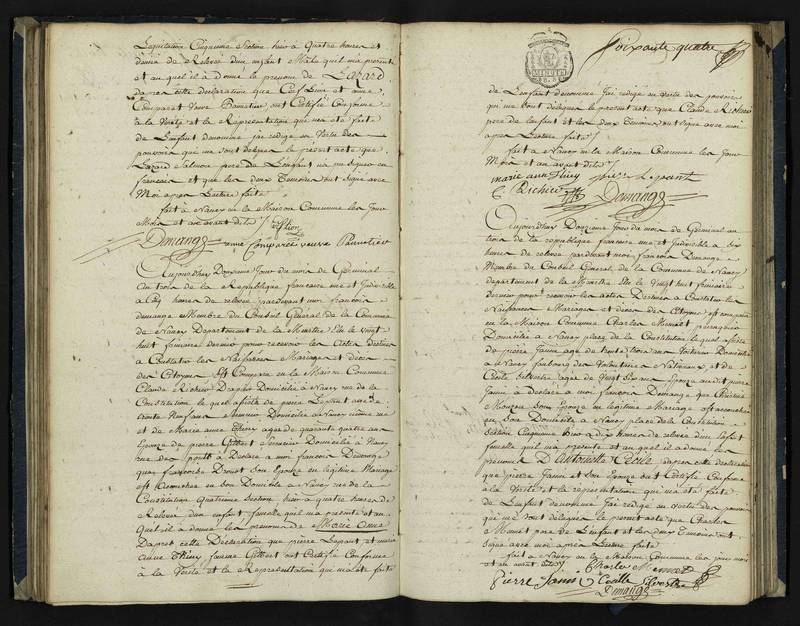 Legislation Cinquieme Section hier à Quatre heures et
demie de Relevée d'un enfant Male quil ma presenté
et au quel il a donné le prenom de Lazard
Dapres cette declaration que
Comparet Veuve Pannetier ont Certifié Conforme
à la Verité et la Representation qui ma été faite
de L'enfant denommé j'ai redigé en Vertu des
pouvoirs qui me sont delegués le present acte que
Lazard Salmon pere de L'enfant na pu signer en
francois et que les deux Temoins ont signé avec
Moi apres Lecture faite
fait à Nancy en la Maison Commune les Jour
Mois et an avant dits
Demange anne Comparet veuve Pannetier
Aujourdhuy Douzieme Jour du mois de Germinal
an trois de la Republique francaise une et Indivisible
à Cinq heures de relevée pardevant moi francois
demange Membre du Conseil General de la Commune
de Nancy Departement de la Meurthe Elu le vingt
huit frimaire dernier pour recevoir les Actes Destinés
à Constater les Naissances Mariages et décès
des Citoyens Est Comparu en la Maison Commune
Claude Richier Drapier Domicilié à Nancy rue de la
Constitution lequel assisté de pierre Lepant agé de
trente Neuf ans Domicilié à Nancy même rue
et de Marie anne Thiery agée de quarante quatre ans
Epouse de pierre Gilbert Domicilié à Nancy
rue des ponts à Declaré à moi francois Demange
que francoise Drouot Son Epouse en legitime Mariage
est accouchée en son Domicile à Nancy rue de la
Constitution Quatrieme Section hier à quatre heures de
Relevée d'un enfant femelle quil ma presenté et au
quel il a donné les prenoms de Marie Anne
Dapres cette Declaration que pierre Lepant et marie
anne Thiery femme Gilbert ont Certifié Conforme
à la Verité et la Representation qui ma été faite
Soixante quatre
MINUTE
de L'enfant denommé j'ai redigé en Vertu des pouvoirs
qui me sont delegués le present acte que Claude Richier
pere de L'enfant et les deux Temoins ont signé avec moi
apres Lecture faite
fait à Nancy en la Maison Commune les Jour
Mois et an avant dits
marie ann thiery pierre Lepant
C Richier Demange
Aujourdhuy Douzieme Jour du mois de Germinal an
trois de la republique francaise une et Indivisible à Six
heures de relevée pardevant moi francois Demange
Membre du Conseil General de la Commune de Nancy
departement de la Meurthe Elu le vingt huit frimaire
dernier pour recevoir les Actes Destinés à Constater les
Naissances Mariages et décès des Citoyens est comparu
en la Maison Commune Charles Menret perruquier
Domicilié à Nancy place de la Constitution lequel assisté
de pierre Janin agé de trente trois ans Domicilié
à Nancy faubourg des Volontaires Nationaux et de
Cecile Silvestre agée de Vingt Epouse audit pierre
Janin à declaré à moi francois Demange que Christine
Mouzon Son Epouse en legitime Mariage est accouchée
en son Domicile à Nancy place de la Constitution
Section Cinquieme hier à dix heures de relevée d'un Enfant
femelle quil ma presenté et au quel il a donné les
prenoms D'antoinette Cecile dapres cette declaration
que pierre Janin et Son Epouse ont Certifié Conforme
à la Verité et la representation qui ma été faite
de L'enfant denommé j'ai redigé en Vertu des pouvoirs
qui me sont delegués le present acte que Charles
Menret pere de L'enfant et les deux Temoins ont
signé avec moi apres Lecture faite
fait à Nancy en la Maison Commune les jour mois
et an avant dits Charle Menret
Pierre Janin Cecille Silvestre
Demange